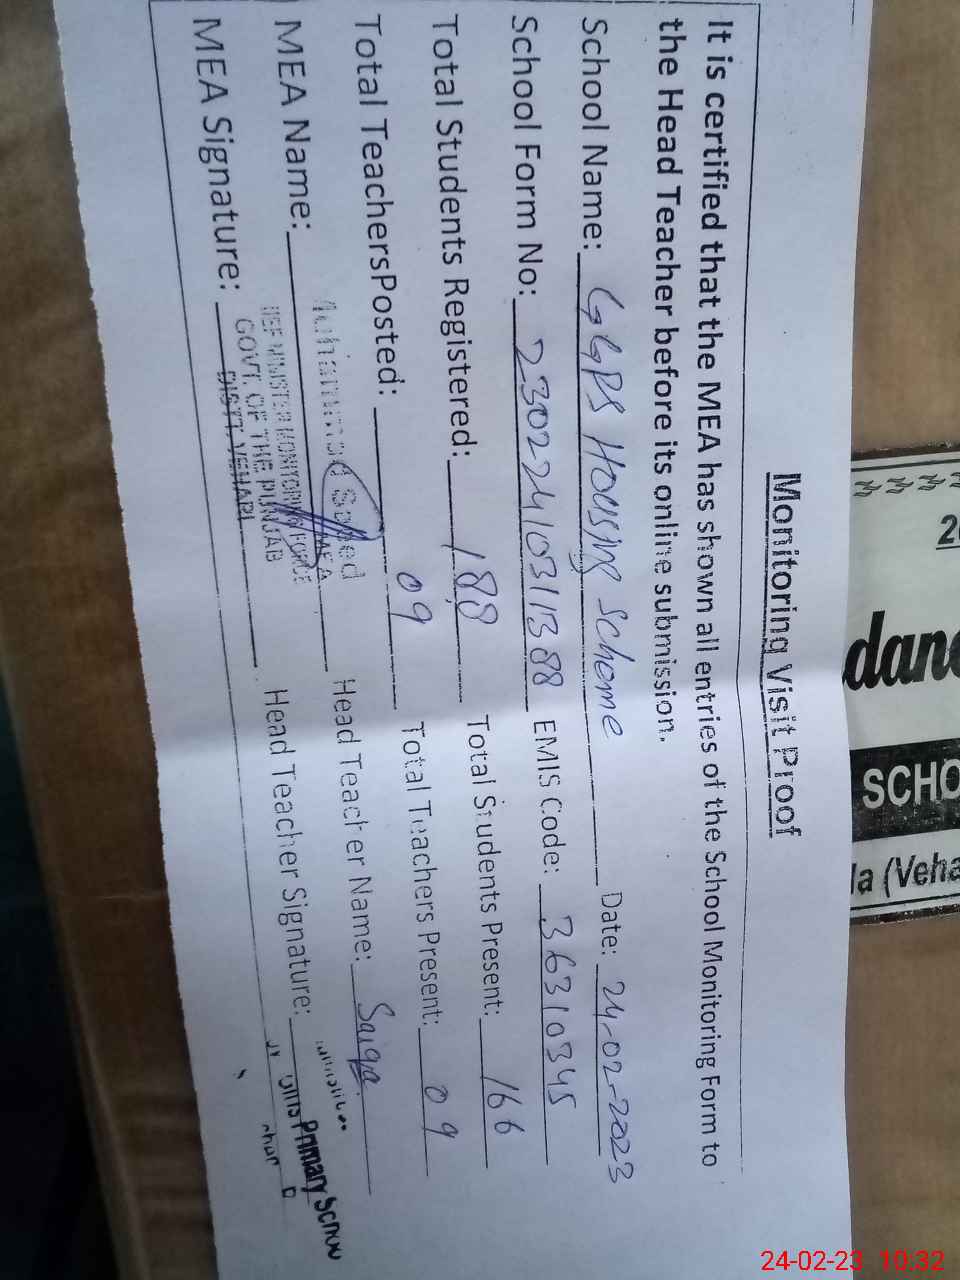 Monitoring Visit Proof
It is certified that the MEA has shown all entries of the School Monitoring Form to
the Head Teacher before its online submission.
School Name: GGPS Housing Scheme Date: 24-02-2023
School Form No: 230224103111388 EMIS Code: 36310345
Total Students Registered: 188 Total Students Present: 166
Total TeachersPosted: 09 Total Teachers Present: 09
MEA Name: Muhammad Saeed Head Teacher Name: Saiqa
MEA
MEA Signature: Head Teacher Signature:
MINISTER MONITORING FORCE
GOVT. OF THE PUNJAB
DISTT. VEHARI
Primary
SCHO
(Veha
24-02-23 10:32